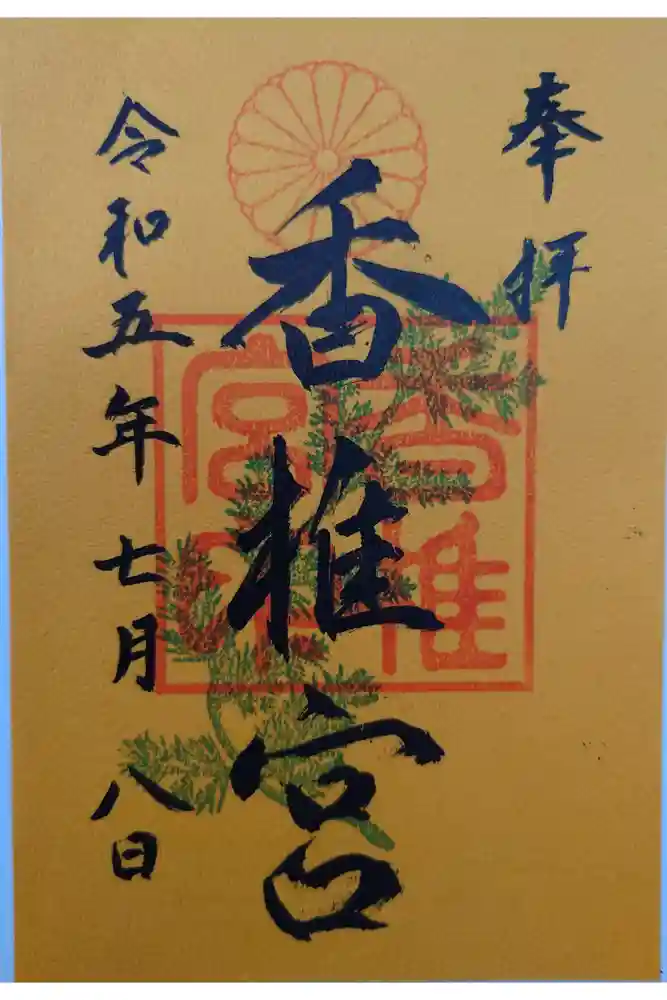 奉拝
香椎宮
令和五年七月八日